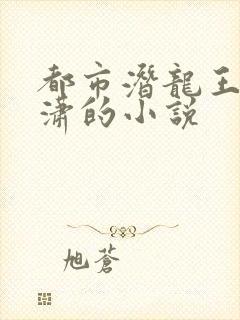 都市潛龍王
瀟的小說
旭蒼